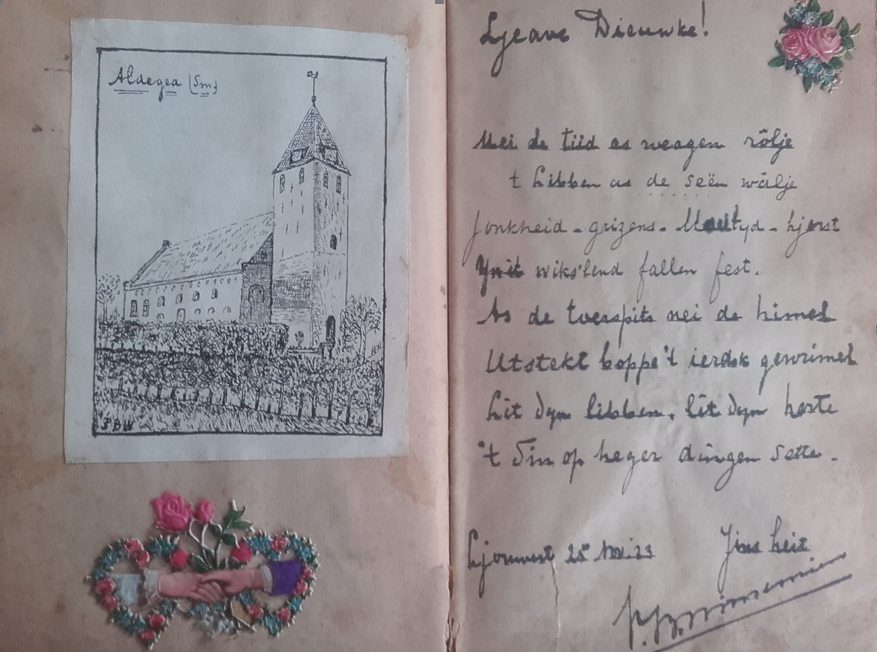 Aldegea (Sm.)
Ljeave Dieuwke!
Mei de tiid as weagen rôlje
t Libben as de seën wâlje
Jonkheid - grizens - tyd - hjerst
Yn it wiks'lend fallen fest.
As de toerspits nei de himel
Utstekt boppe 't ierdsk gewrimel
Lit dyn libben, lit dyn herte
't Sin op heger dingen sette.
Ljouwert 25 Jins heit